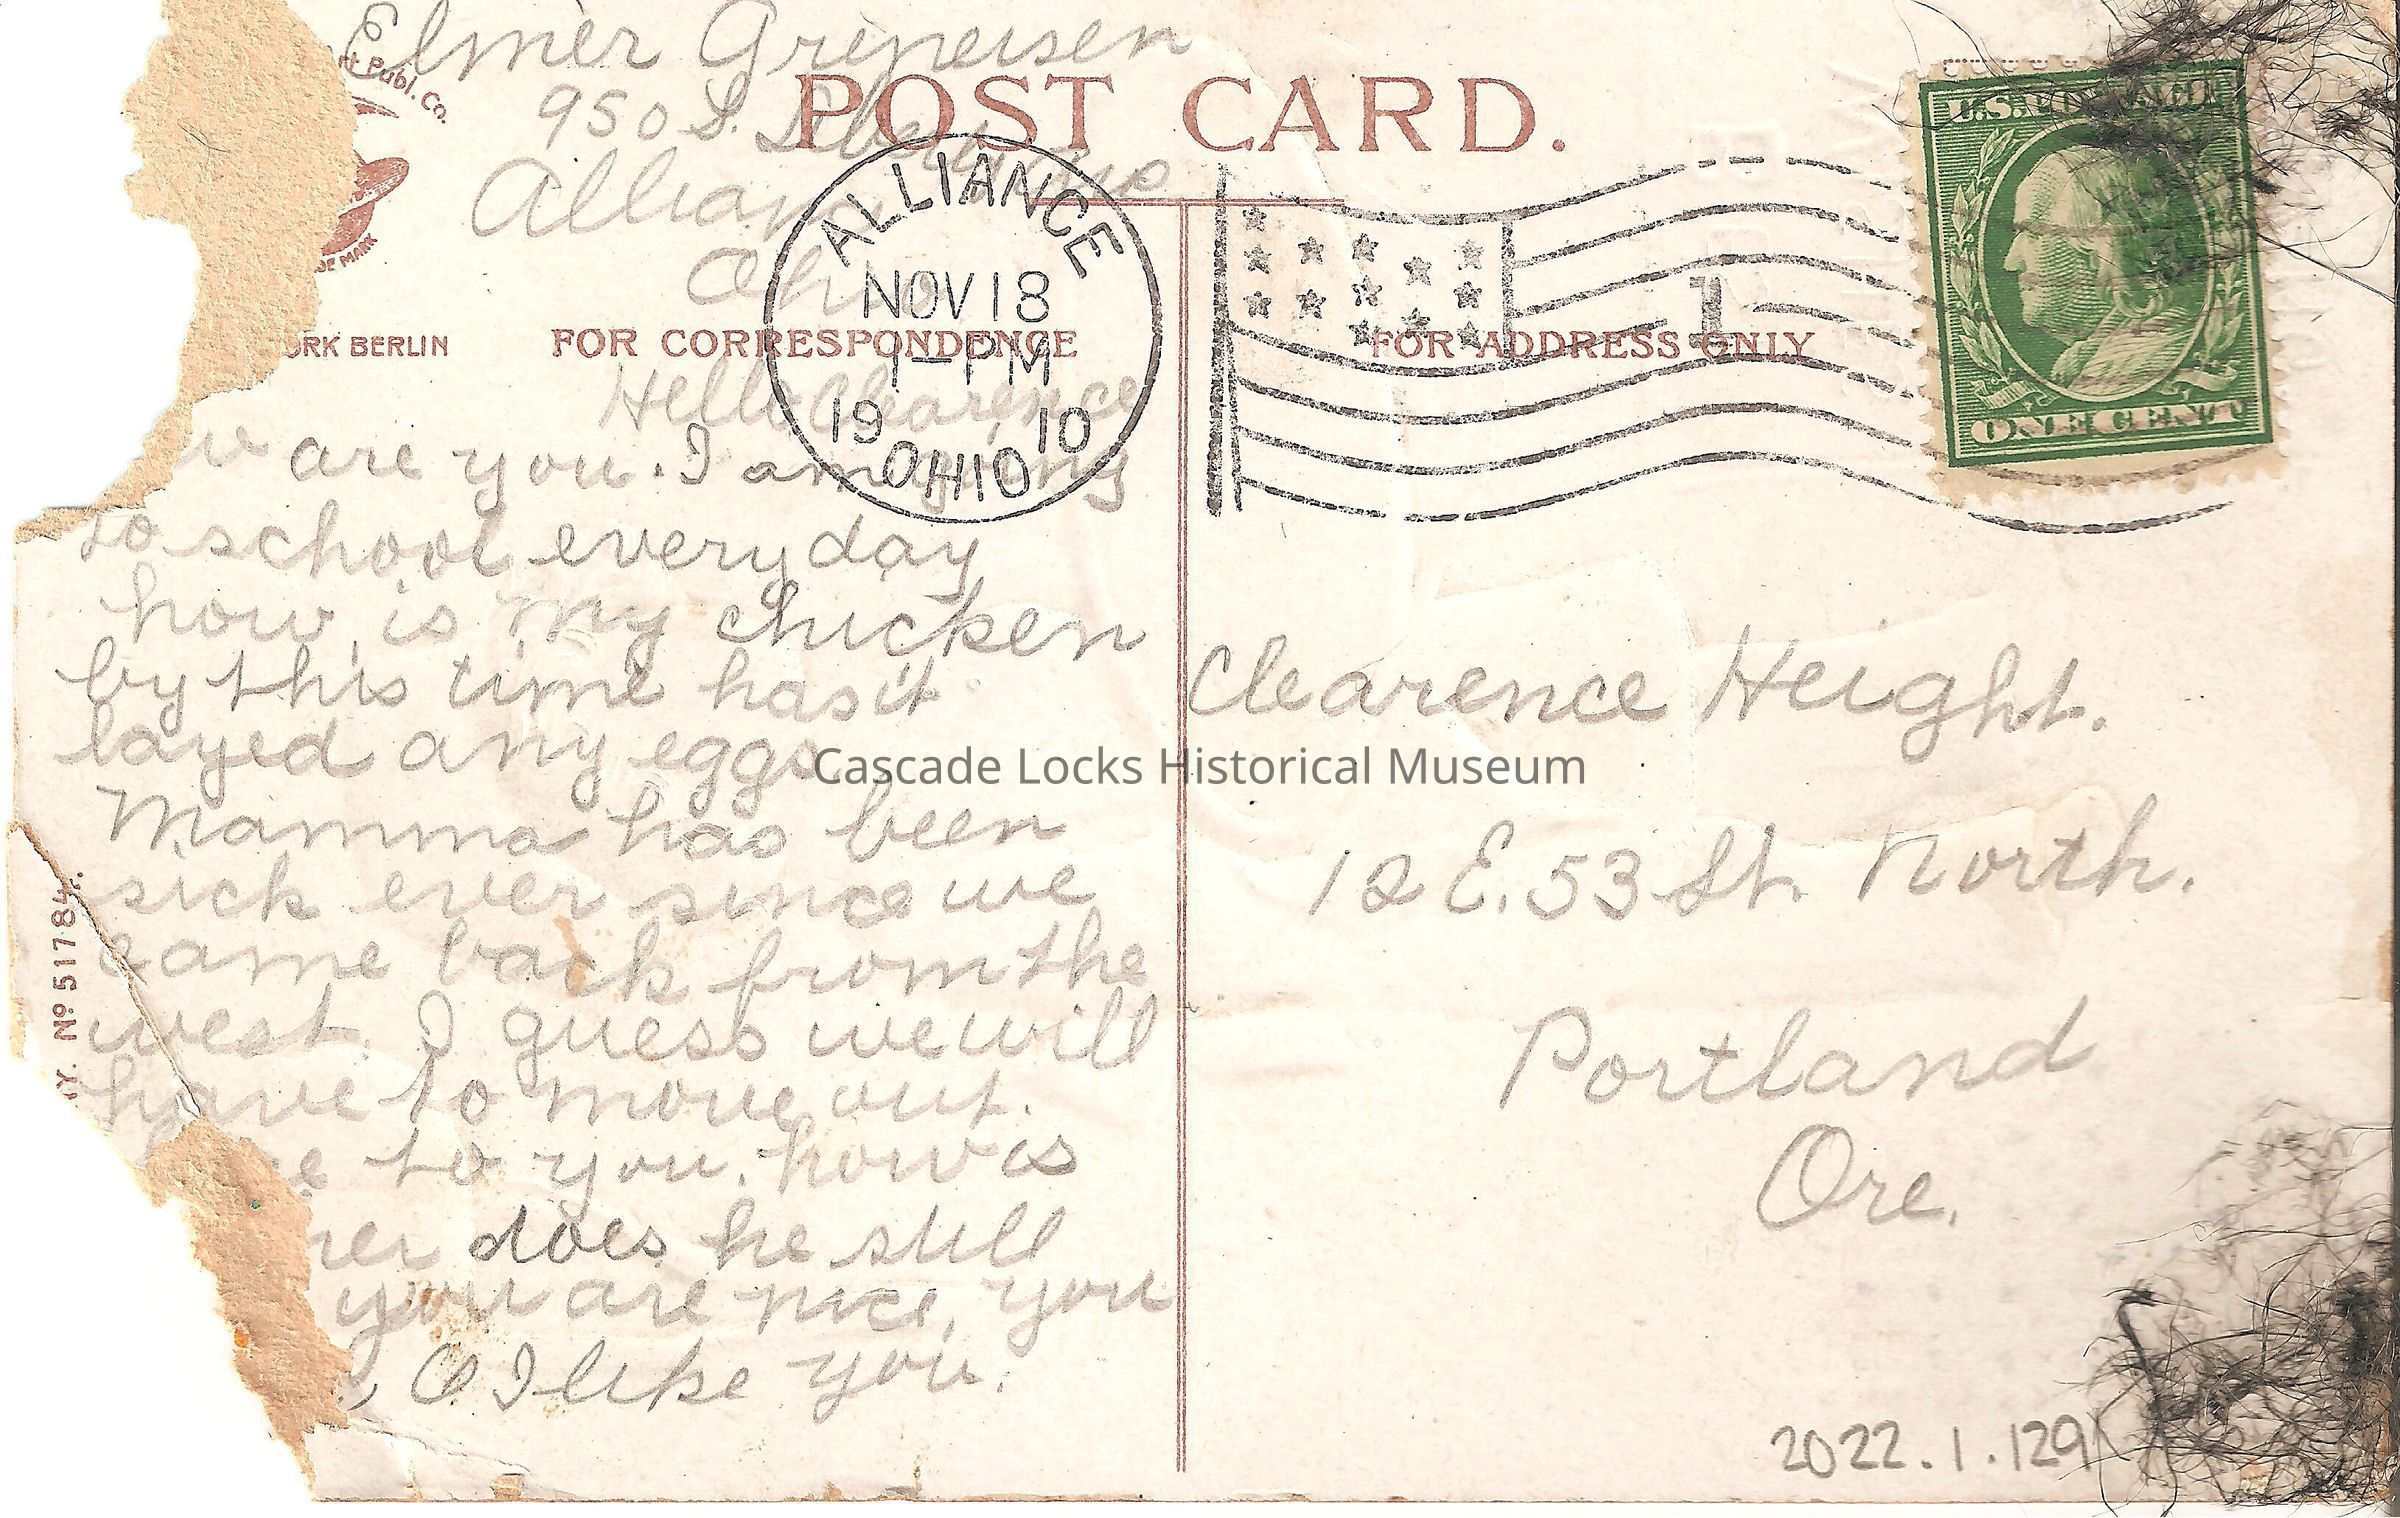 Elmer Grineisen
950 S. Liberty Ave
Alliance
Ohio
rt Publ. Co.
DE MARK
POST CARD.
ALLIANCE
NOV 18
1-PM
19 10
OHIO
1
U.S.
ONE CENT
ORK BERLIN
FOR CORRESPONDENCE
FOR ADDRESS ONLY
Hello Clearence
are you. I am going
to school every day
how is my chicken
by this time has it
layed any eggs
Mamma has been
sick ever since we
came back from the
west. I guess we will
have to move out.
to you. how is
does he still
you are nice, you
O I like you.
Y. Nº 51784.
Clearence Height.
12 E. 53 St. North.
Portland
Ore.
Cascade Locks Historical Museum
2022.1.129